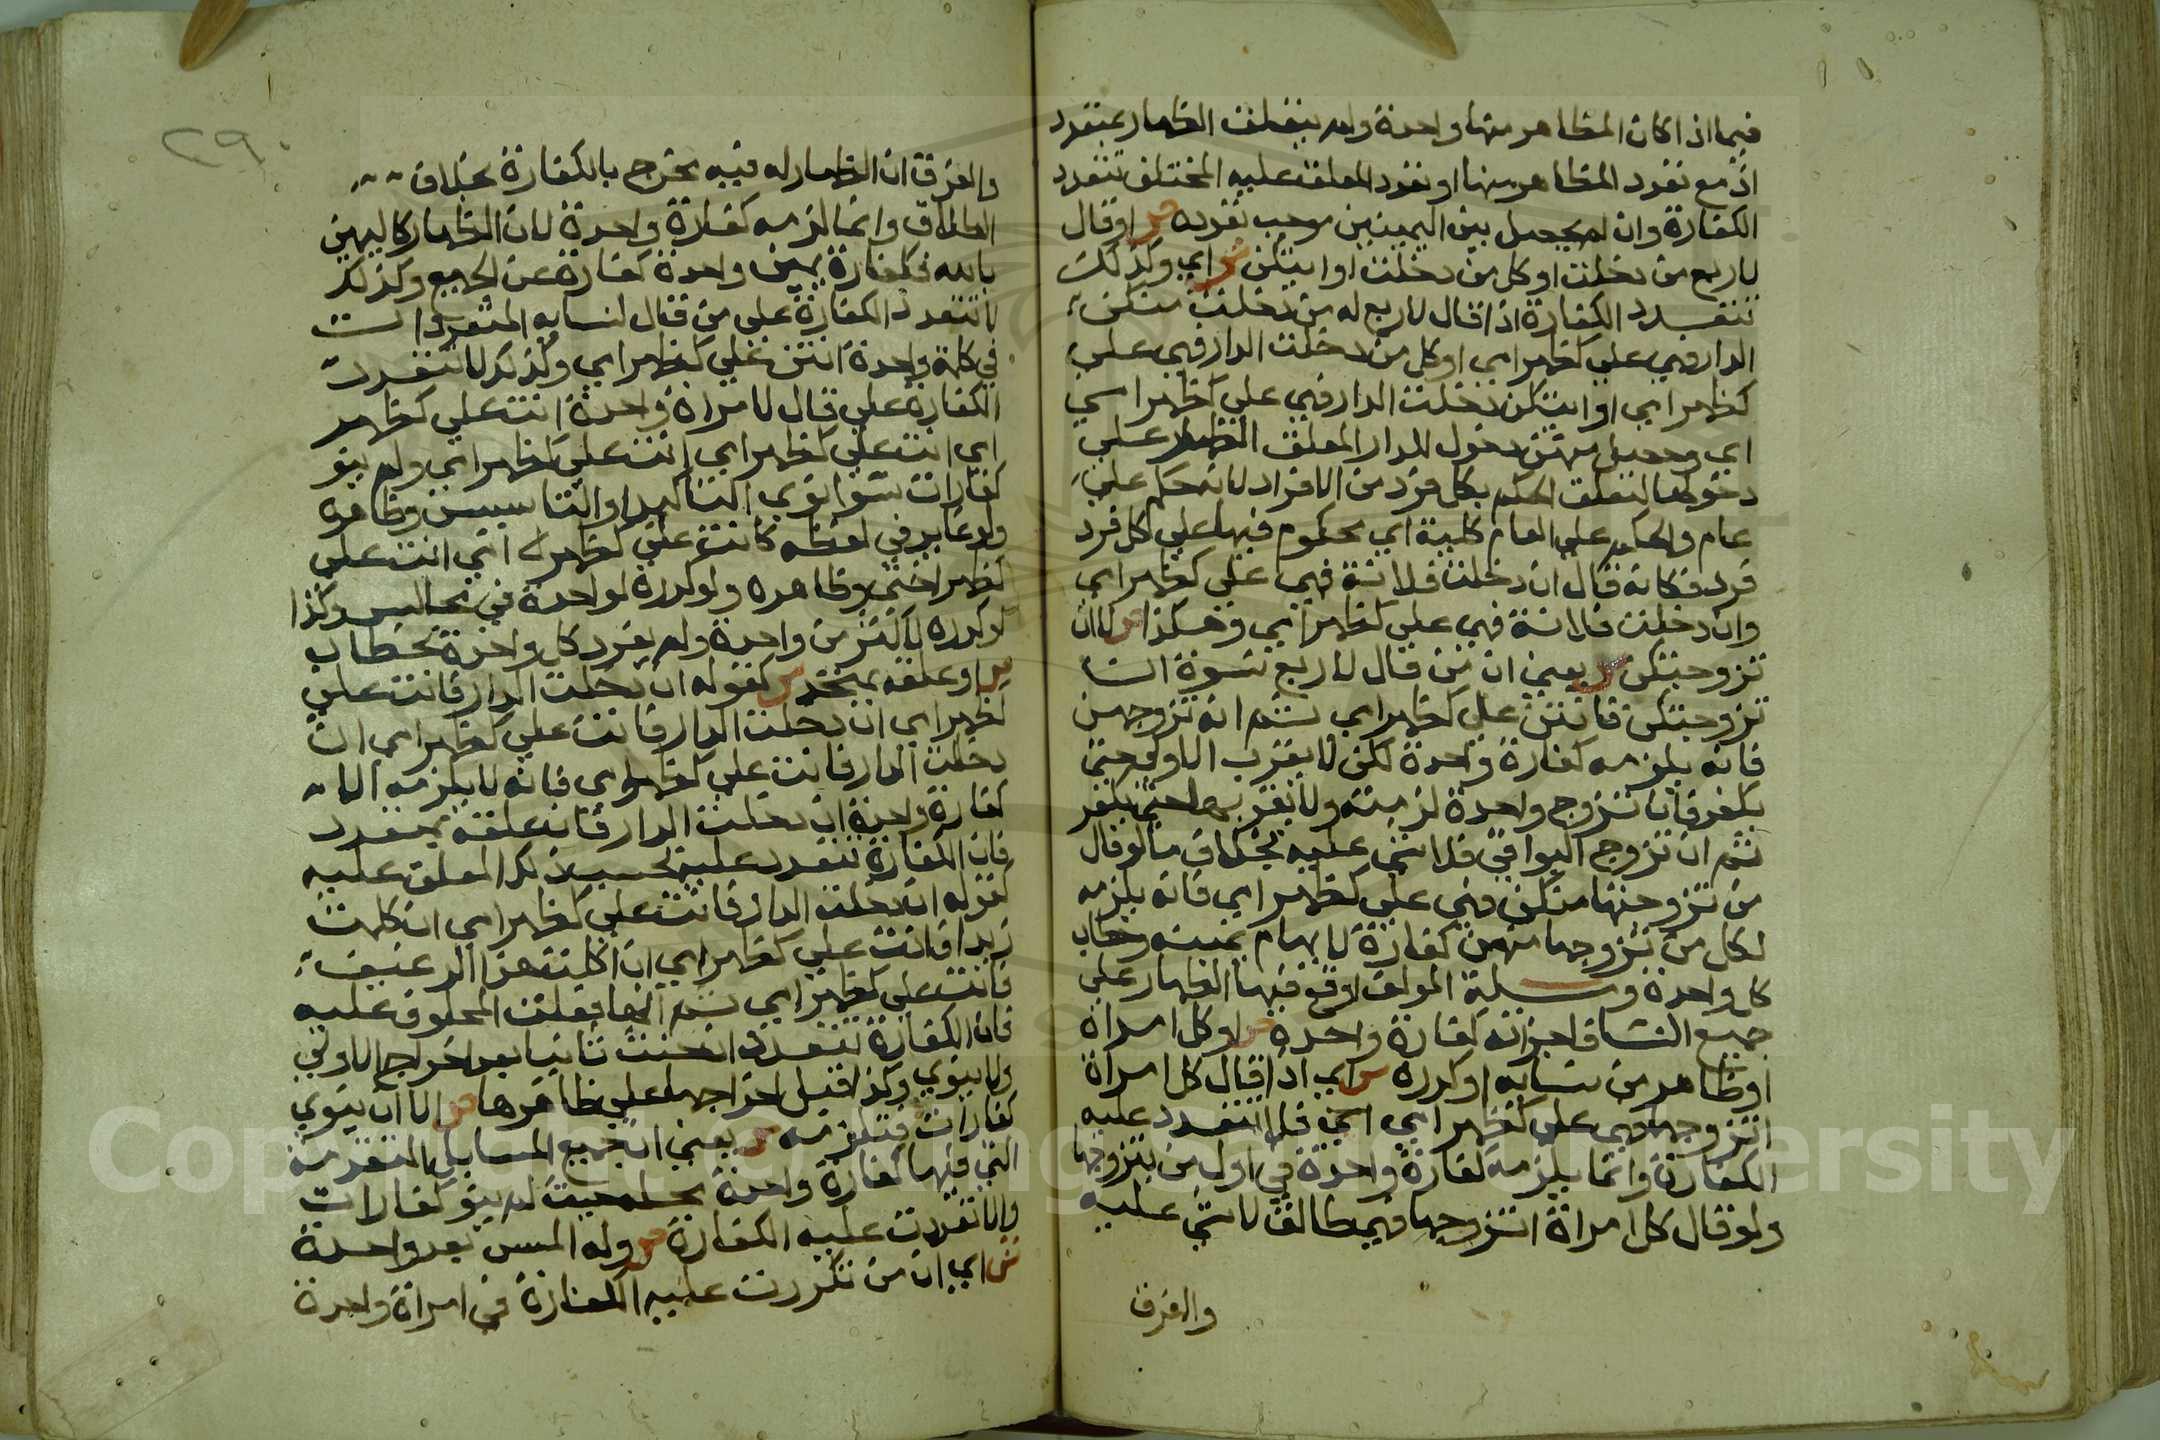 فيما اذا كان المظاهر منها واحدة ولم يتعلق الظهار بمتعدد
اذ مع تعدد المظاهر منها او تعدد المعلق عليه المختلف تتعدد
الكفارة وان لم يحصل بين اليمينين موجب تعدده ص او قال
لاربع من دخلت او كل من دخلت او ايتكن ش اي وكذلك
تتعدد الكفارة اذا قال لاربع له من دخلت منكن
الدار فهي علي كظهر امي او كل من دخلت الدار فهي علي
كظهر امي او ايتكن دخلت الدار فهي علي كظهر امي
اي وحصل منهن دخول للدار المعلق الظهار علي
دخولها لتعلق الحكم بكل فرد من الافراد لانه حكم علي
عام والحكم علي العام كلية اي محكوم فيها علي كل فرد
فرد فكانه قال ان دخلت فلانة فهي علي كظهر امي
وان دخلت فلانة فهي علي كظهر امي وهكذا ص لا ان
تزوجتكن ش يعني ان من قال لاربع نسوة ان
تزوجتكن فانتن علي كظهر امي ثم انه تزوجهن
فانه يلزمه كفارة واحدة لكن لا يقرب الاولي حتي
يكفر فان تزوج واحدة لزمته ولا يقربها حتي يكفر
ثم ان تزوج البواقي فلا شي عليه بخلاف ما لو قال
من تزوجتها منكن فهي علي كظهر امي فانه يلزمه
لكل من تزوجها منهن كفارة لابهام يمينه وخاب
كل واحدة ومسيلة المولف اوقع فيها الظهار علي
جميع النسا فاجزاته كفارة واحدة ص او كل امراة
او ظاهر من نسايه او كرره ش اي اذا قال كل امراة
اتزوجها فهي علي كظهر امي فلا تتعدد عليه
الكفارة وانما يلزمه كفارة واحدة في اول من يتزوجها
ولو قال كل امراة اتزوجها فهي طالق لا شي عليه
والفرق
٢٩٠
والفرق ان الظهار له فيه مخرج بالكفارة بخلاف
الطلاق وانما لزمه كفارة واحدة لان الظهار كاليمين
بالله فكفارة يمين واحدة كفارة عن الجميع وكذلك
لا تتعدد الكفارة علي من قال لنسايه المتعددات
في كلمة واحدة انتن علي كظهر امي وكذلك لا تتعدد
الكفارة علي قال لامراة واحدة انت علي كظهر
امي انت علي كظهر امي انت علي كظهر امي ولم ينو
كفارات سوا نوي التاكيد او التاسيس وظاهره
ولو غاير في لفظه كانت علي كظهر امي انت علي
كظهر اختي وظاهره ولو كرره لواحدة في مجالس وكذا
لو كرره لاكثر من واحدة ولم يفرد كل واحدة بخطاب
ص او علقه بمتحد ش كقوله ان دخلت الدار فانت علي
كظهر امي ان دخلت الدار فانت علي كظهر امي ان
دخلت الدار فانت علي كظهر امي فانه لا يلزمه الا
كفارة واحدة ان دخلت الدار فان علقه بمتعدد
فان الكفارة تتعدد عليه بحسب ذلك المعلق عليه
كقوله ان دخلت الدار فانت علي كظهر امي ان كلمت
زيدا فانت علي كظهر امي ان اكلت هذا الرغيف
فانت علي كظهر امي ثم انها فعلت المحلوف عليه
فان الكفارة تتعدد ان حنث ثانيا بعد اخراج الاولي
ولا ينوي وكذا قبل اخراجها علي ظاهرها ص الا ان ينوي
كفارات فتلزمه ش يعني ان جميع المسايل المتقدمة
التي فيها كفارة واحدة محله حيث لم ينو كفارات
والا تعددت عليه الكفارة ص وله المس بعد واحدة
ش اي ان من تكررت عليه الكفارة في امراة واحدة
Copyright © King Saud University